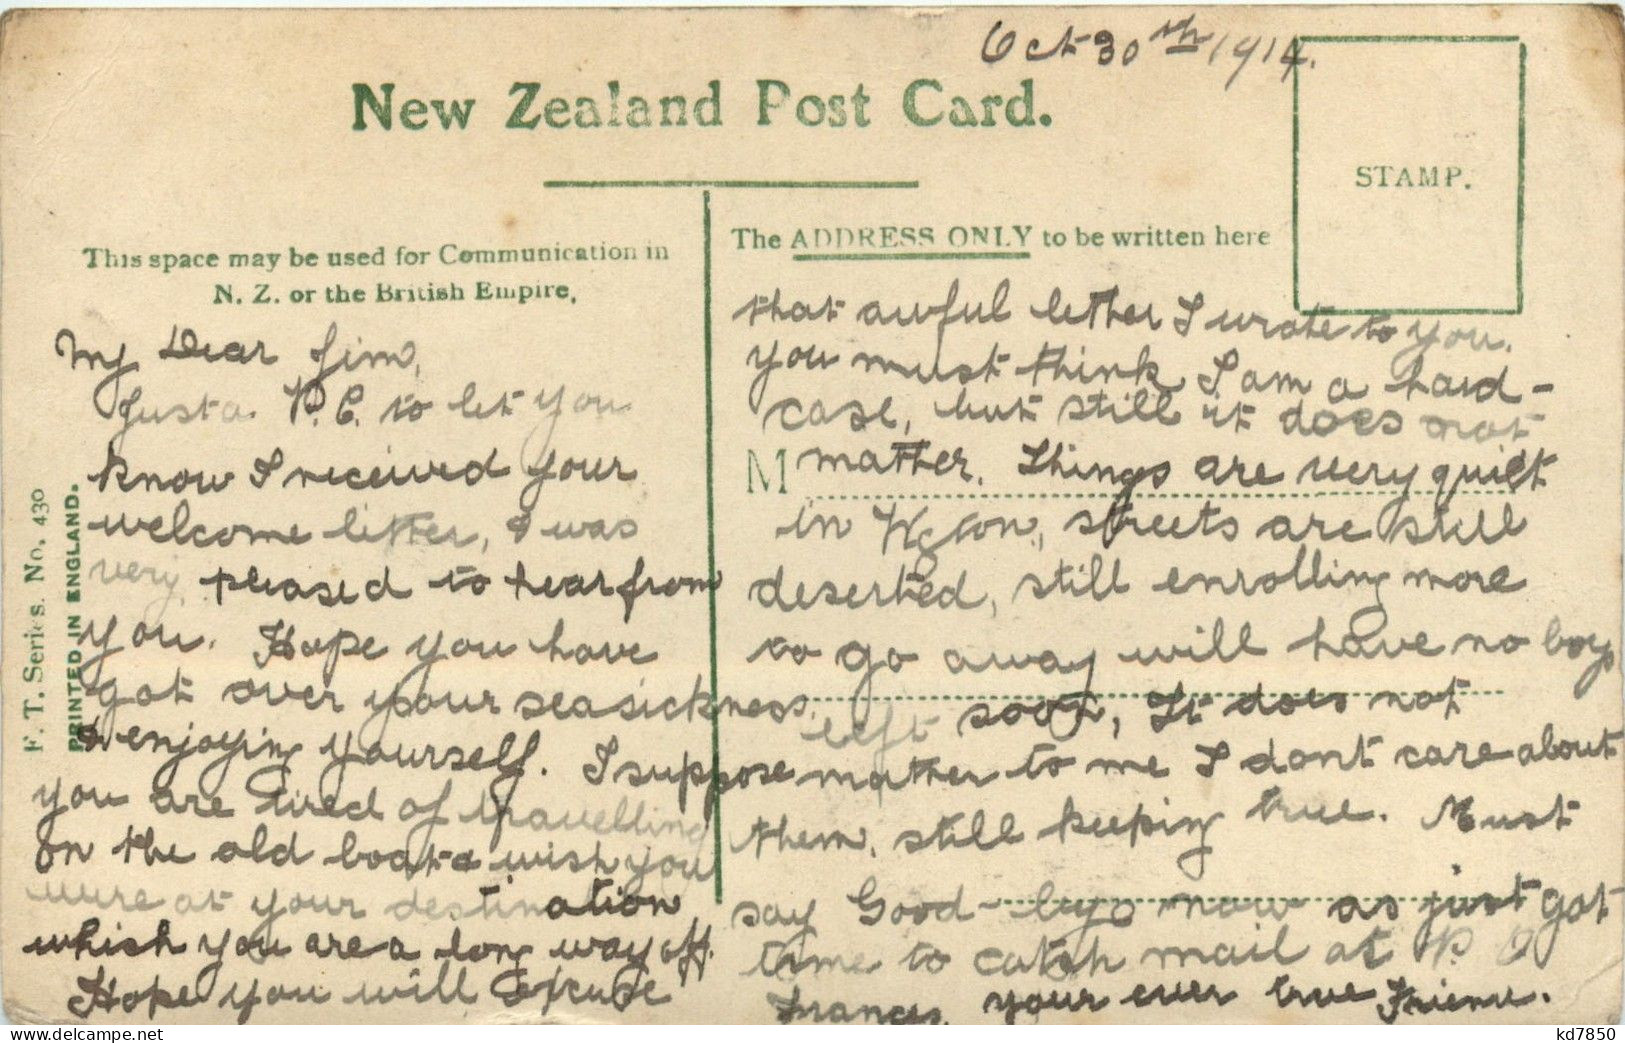 Oct 30th 1914.
New Zealand Post Card.
STAMP.
This space may be used for Communication in
N. Z. or the British Empire.
The ADDRESS ONLY to be written here
F. T. Series. No. 430
PRINTED IN ENGLAND.
My Dear Jim,
Just a P.C. to let you
know I received your
welcome letter, I was
very pleased to hear from
you. Hope you have
got over your seasickness.
& enjoying yourself. I suppose
you are tired of travelling
on the old boat & wish you
were at your destination
which you are a long way off.
Hope you will Excuse
that awful letter I wrote to you.
you must think I am a hard-
case, but still it does not
M matter. Things are very quiet
in Wgton, streets are still
deserted, still enrolling more
to go away will have no boys
left soon, It does not
matter to me I dont care about
them, still keeping true. Must
say Good-bye now as just got
time to catch mail at P. O
Frances, your ever true Friend.
kd7850